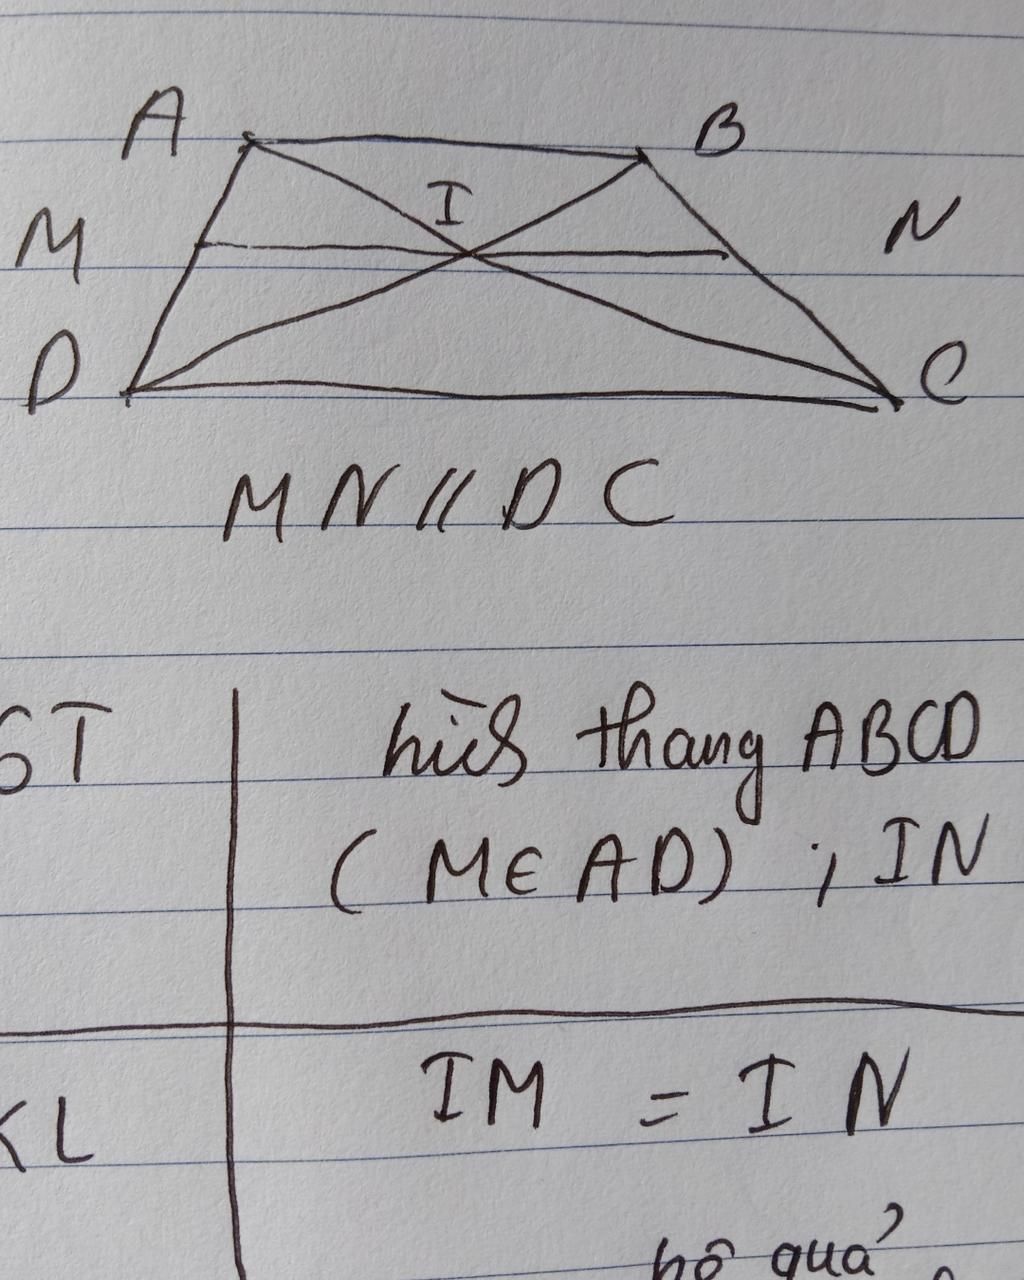 A B
I
M N
D C
MN // DC
GT hình thang ABCD
(M ∈ AD) ; IN
KL IM = IN
quả